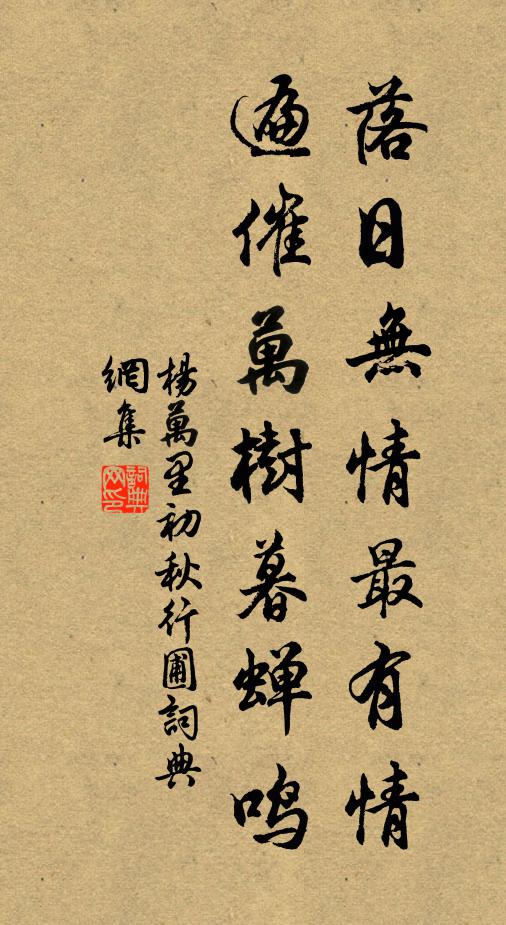 落日無情最有情
遍催萬樹暮蝉鸣
楊萬里初秋行圃詞典
網集
詞典网印